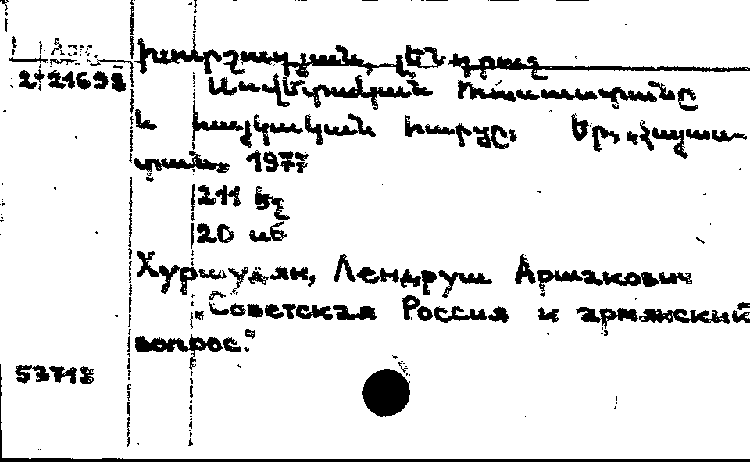 Խուրշուդյան, Լենդրուշ
2-21698
Սովետական Ռուսաստանը
և հայկական հարցը։ Եր., «Հայաս-
տան», 1977
211 էջ
20 սմ
Хуршудян, Лендруш Аршакович
"Советская Россия и армянский
вопрос."